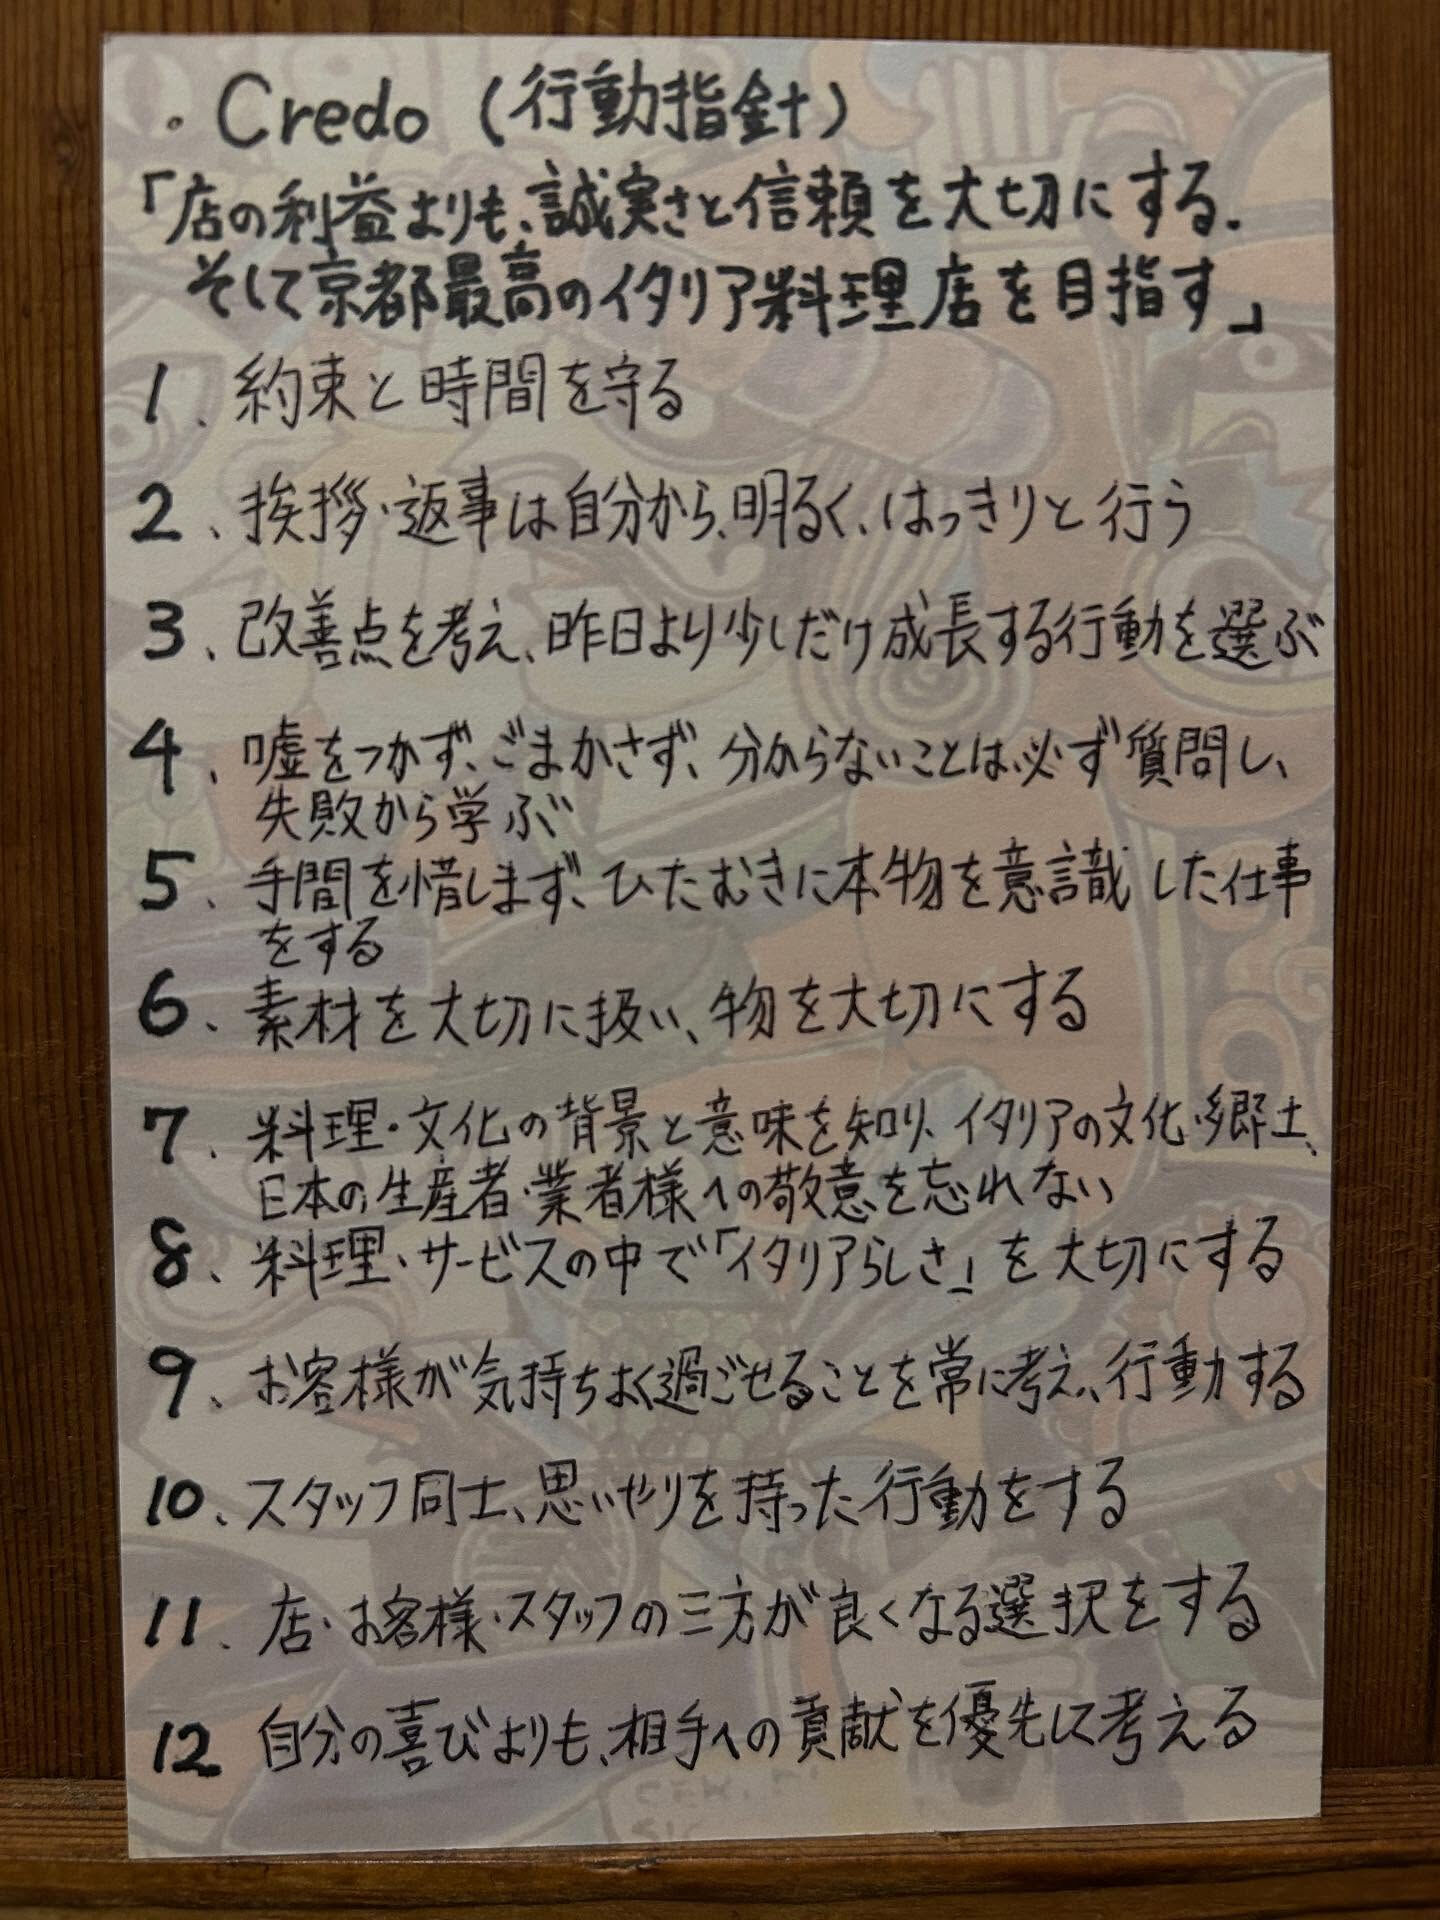 ・Credo（行動指針）
「店の利益よりも、誠実さと信頼を大切にする.
そして京都最高のイタリア料理店を目指す」
1、約束と時間を守る
2、挨拶・返事は自分から、明るく、はっきりと行う
3、改善点を考え、昨日より少しだけ成長する行動を選ぶ
4、嘘をつかず、ごまかさず、分からないことは、必ず質問し、
失敗から学ぶ
5、手間を惜しまず、ひたむきに本物を意識した仕事
をする
6、素材を大切に扱い、物を大切にする
7、料理・文化の背景と意味を知り、イタリアの文化・郷土、
日本の生産者・業者様への敬意を忘れない
8、料理・サービスの中で「イタリアらしさ」を大切にする
9、お客様が気持ちよく過ごせることを常に考え、行動する
10、スタッフ同士、思いやりを持った行動をする
11、店・お客様・スタッフの三方が良くなる選択をする
12 自分の喜びよりも、相手への貢献を優先して考える